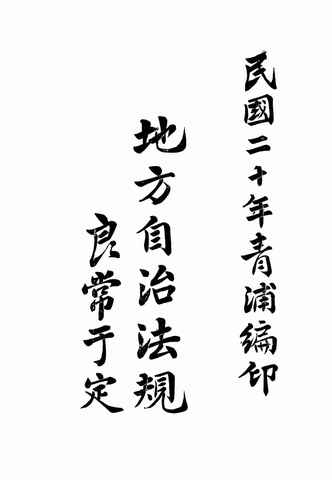 民國二十年青浦編印
地方自治法規
良常于定